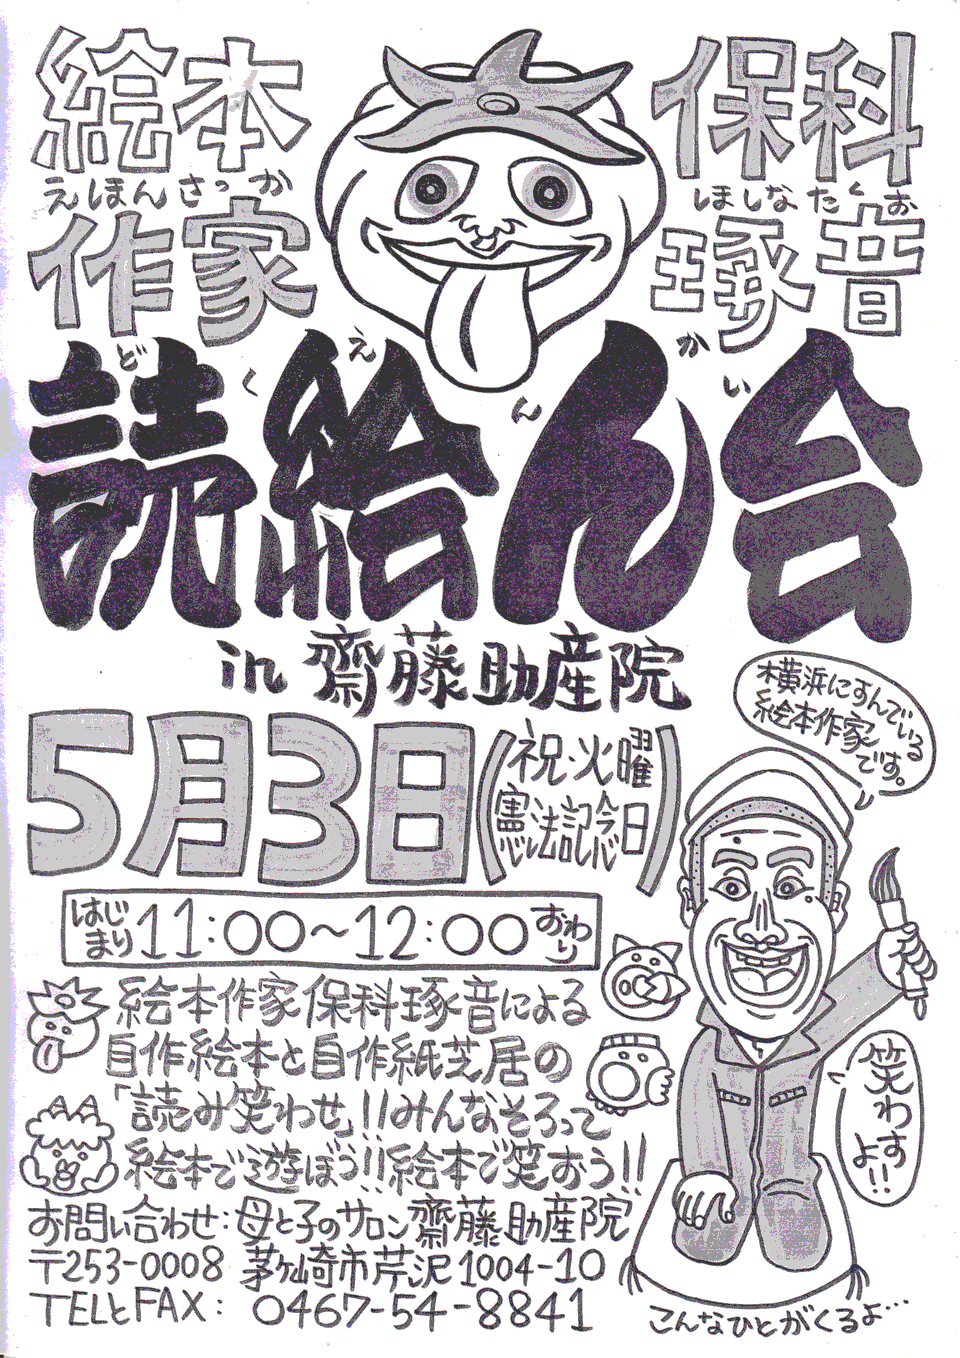 絵本
えほんさっか
作家
保科
ほしなたくお
琢音
どくえんかい
読絵ん会
in 齋藤助産院
5月3日(祝・火曜
憲法記念日)
はじまり11:00～12:00おわり
横浜にすんでいる
絵本作家
です。
絵本作家保科琢音による
自作絵本と自作紙芝居の
「読み笑わせ」!!みんなそろって
絵本で遊ぼう!!絵本で笑おう!!
笑わす
よ!!
お問い合わせ:母と子のサロン齋藤助産院
〒253-0008 茅ヶ崎市芹沢1004-10
TELとFAX: 0467-54-8841
こんなひとがくるよ…